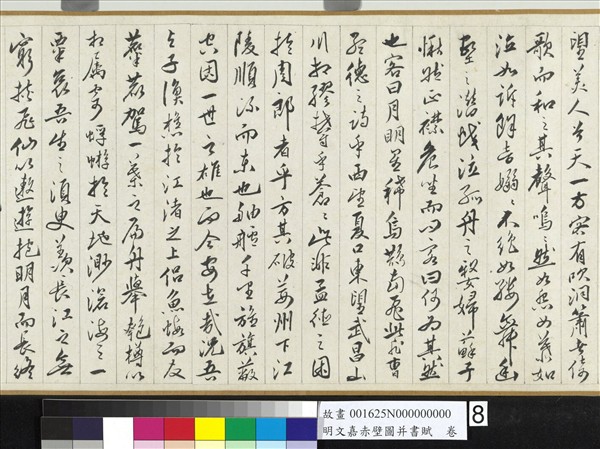 望美人兮天一方客有吹洞簫者倚
歌而和之其聲嗚〻然如怨如慕如
泣如訴餘音嫋〻不絕如縷舞幽
壑之潛蛟泣孤舟之嫠婦蘇子
愀然正襟危坐而問客曰何為其然
也客曰月明星稀烏鵲南飛此非曹
孟德之詩乎西望夏口東望武昌山
川相繆鬱乎蒼〻此非孟德之困
於周郎者乎方其破荊州下江
陵順流而東也舳艫千里旌旗蔽
空固一世之雄也而今安在哉況吾
與子漁樵於江渚之上侶魚蝦而友
麋鹿駕一葉之扁舟舉匏樽以
相屬寄蜉蝣於天地渺滄海之一
粟哀吾生之須臾羨長江之無
窮挾飛仙以遨遊抱明月而長終
故畫 001625N000000000
明文嘉赤壁圖并書賦 卷
8